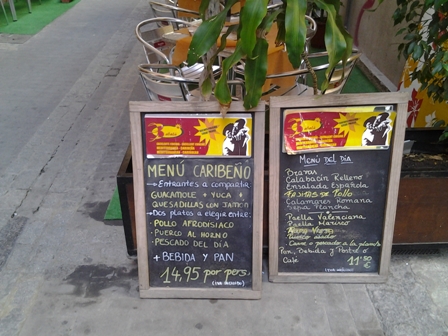 MENÚ CARIBEÑO
Entrantes a compartir
GUACAMOLE + YUCA +
QUESADILLAS con JAMÓN
Dos platos a elegir entre:
POLLO AFRODISIACO
PUERCO AL HORNO
PESCADO DEL DÍA
+ BEBIDA Y PAN
14,95 por pers.
(IVA incluido)
MENÚ DEL DÍA
Bravas
Calabacín Relleno
Ensalada Española
Calamares Romana
Sepia Plancha
Paella Valenciana
Paella Marisco
Arroz Negro
Carne o pescado a la plancha
Pan, Bebida y Postre o
Café 11'50 €
(IVA incluido)